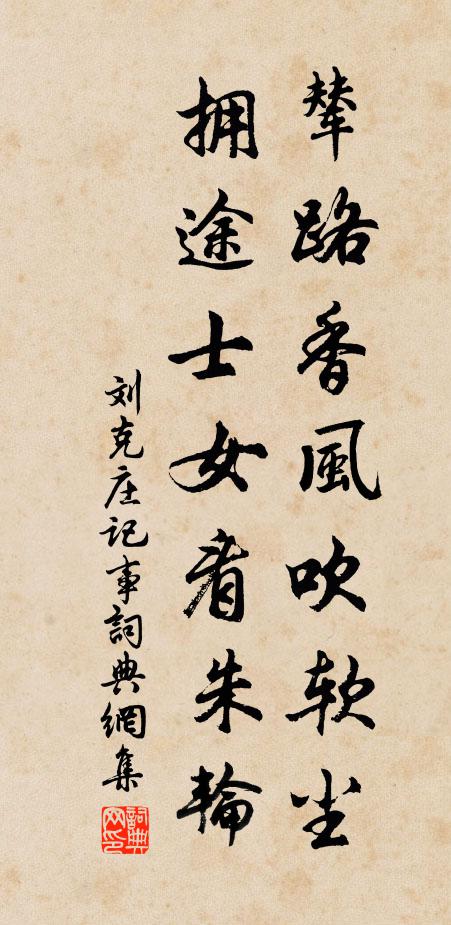 輦路香風吹软尘
拥途士女看朱輪
刘克庄记事詞典網集
詞典网印